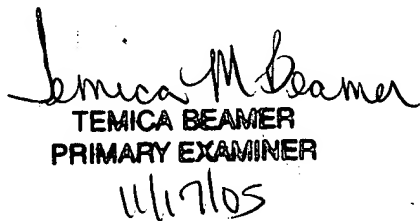 Temica M Beamer
TEMICA BEAMER
PRIMARY EXAMINER
11/17/05